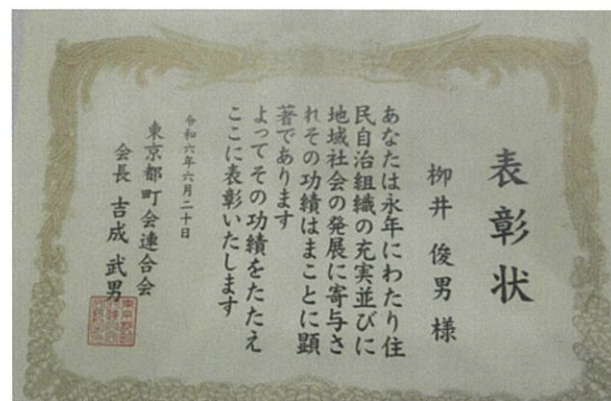 表彰状
柳井 俊男 様
あなたは永年にわたり住
民自治組織の充実並びに
地域社会の発展に寄与さ
れその功績はまことに顕
著であります
よってその功績をたたえ
ここに表彰いたします
令和六年六月二十日
東京都町会連合会
会長 吉成 武男